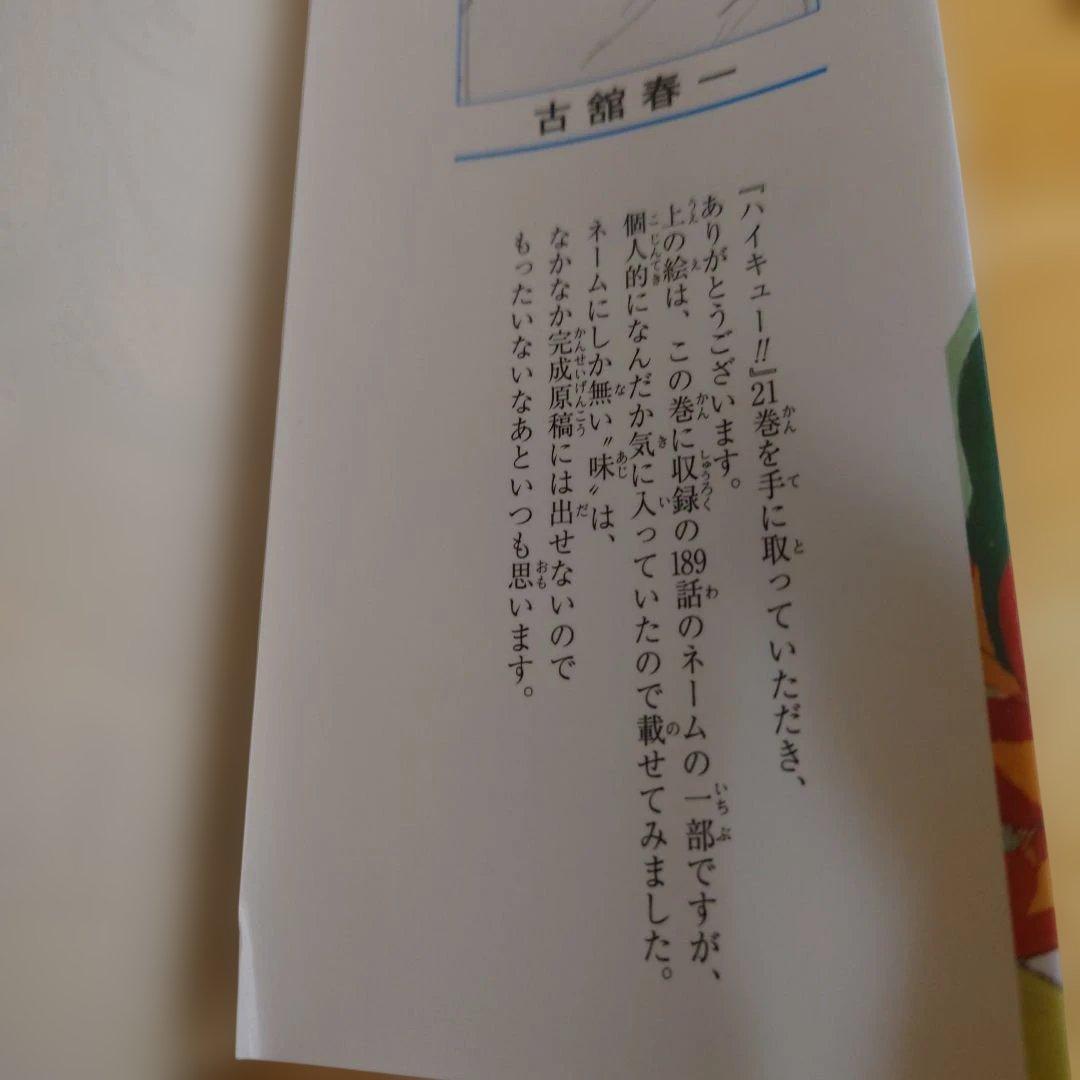 古舘春一
『ハイキュー!!』21巻を手に取っていただき、
ありがとうございます。
上の絵は、この巻に収録の189話のネームの一部ですが、
個人的になんだか気に入っていたので載せてみました。
ネームにしか無い〝味〟は、
なかなか完成原稿には出せないので
もったいないなあといつも思います。